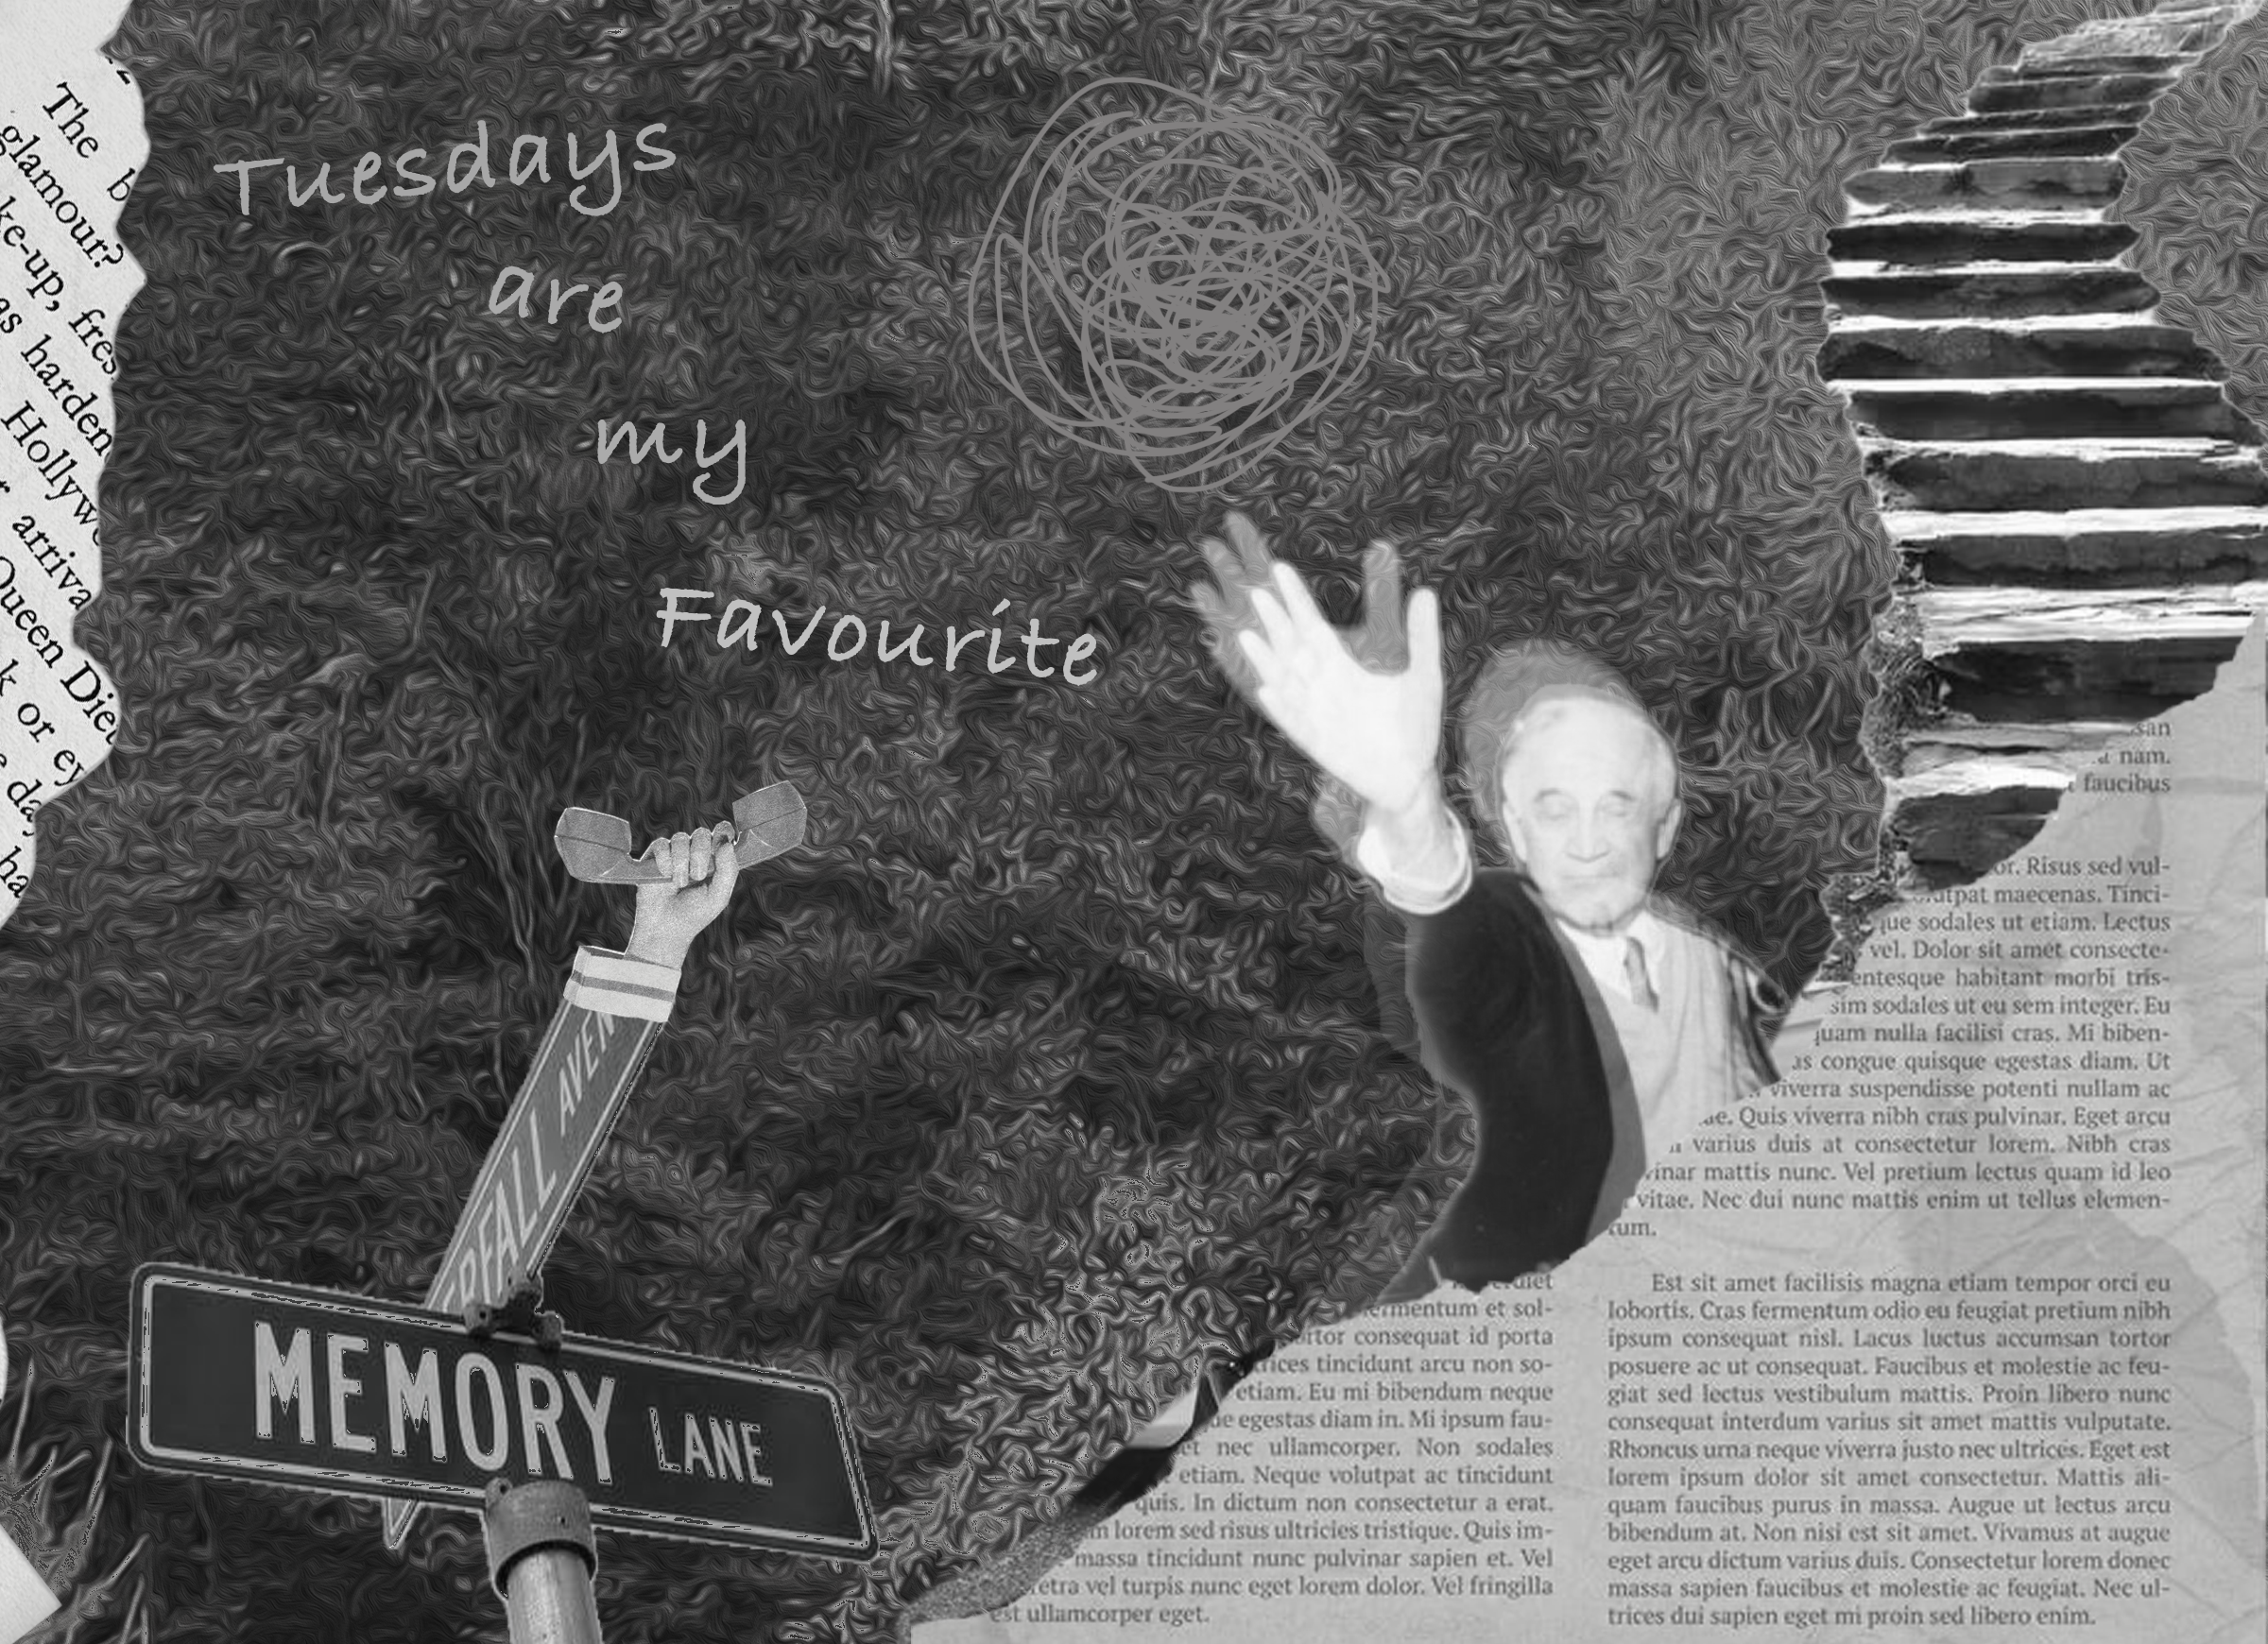 The
glamour?
ke-up,
as
Hollyw
arriva
Queen
k or ey
ha
Tuesdays
are
my
Favourite
RFALL AVEN
MEMORY LANE
nam.
faucibus
or. Risus sed vul-
utpat maecenas. Tinci-
que sodales ut etiam. Lectus
vel. Dolor sit amet consecte-
entesque habitant morbi tris-
sim sodales ut eu sem integer. Eu
quam nulla facilisi cras. Mi biben-
as congue quisque egestas diam. Ut
viverra suspendisse potenti nullam ac
ae. Quis viverra nibh cras pulvinar. Eget arcu
varius duis at consectetur lorem. Nibh cras
inar mattis nunc. Vel pretium lectus quam id leo
vitae. Nec dui nunc mattis enim ut tellus elemen-
tum.
ermentum et sol-
rtor consequat id porta
rices tincidunt arcu non so-
etiam. Eu mi bibendum neque
egestas diam in. Mi ipsum fau-
et nec ullamcorper. Non sodales
etiam. Neque volutpat ac tincidunt
quis. In dictum non consectetur a erat.
m lorem sed risus ultricies tristique. Quis im-
massa tincidunt nunc pulvinar sapien et. Vel
etra vel turpis nunc eget lorem dolor. Vel fringilla
est ullamcorper eget.
Est sit amet facilisis magna etiam tempor orci eu
lobortis. Cras fermentum odio eu feugiat pretium nibh
ipsum consequat nisl. Lacus luctus accumsan tortor
posuere ac ut consequat. Faucibus et molestie ac feu-
giat sed lectus vestibulum mattis. Proin libero nunc
consequat interdum varius sit amet mattis vulputate.
Rhoncus urna neque viverra justo nec ultrices. Eget est
lorem ipsum dolor sit amet consectetur. Mattis ali-
quam faucibus purus in massa. Augue ut lectus arcu
bibendum at. Non nisi est sit amet. Vivamus at augue
eget arcu dictum varius duis. Consectetur lorem donec
massa sapien faucibus et molestie ac feugiat. Nec ul-
trices dui sapien eget mi proin sed libero enim.